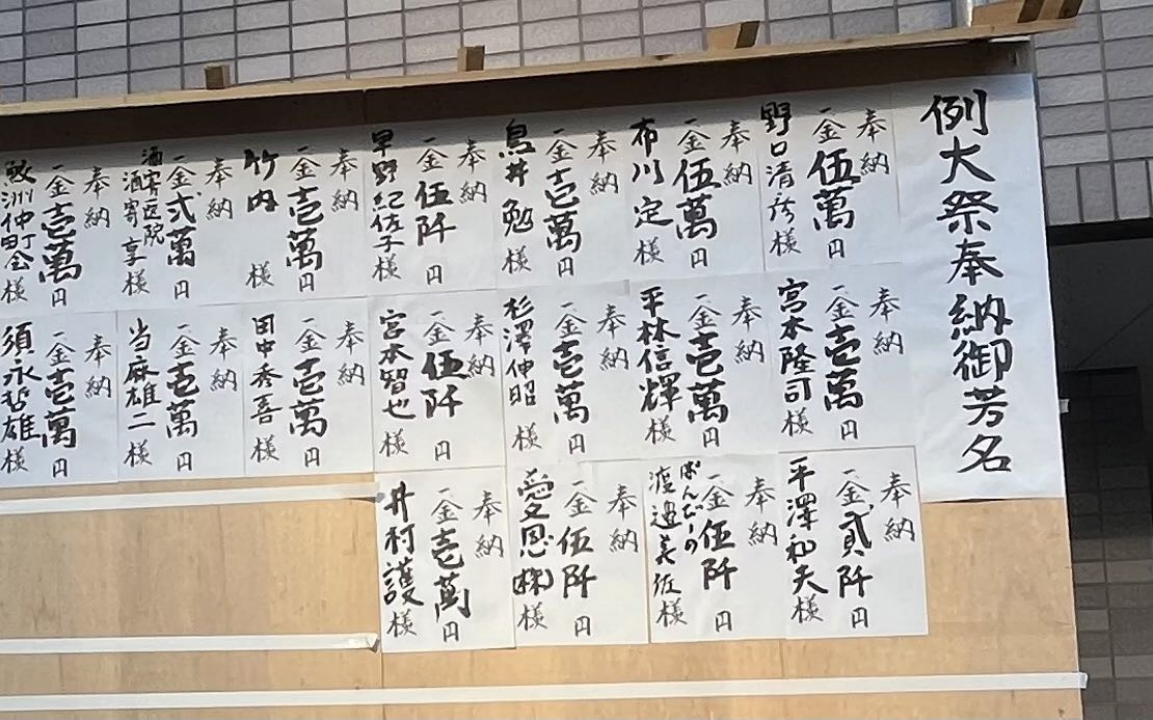 例大祭奉納御芳名
奉納
一金伍萬円
野口清彦様
奉納
一金伍萬円
布川定様
奉納
一金壱萬円
鳥井勉様
奉納
一金伍阡円
早野紀佐子様
奉納
一金壱萬円
竹内様
奉納
一金弐萬円
酒寄医院
酒寄享様
奉納
一金壱萬円
鮫洲仲町会様
奉納
一金壱萬円
宮本隆司様
奉納
一金壱萬円
平林信輝様
奉納
一金壱萬円
杉澤伸昭様
奉納
一金伍阡円
宮本智也様
奉納
一金壱萬円
田中秀喜様
奉納
一金壱萬円
当麻雄二様
奉納
一金壱萬円
須永哲雄様
奉納
一金貳阡円
平澤和夫様
奉納
一金伍阡円
渡邉美佐様
奉納
一金伍阡円
愛恩(株)様
奉納
一金壱萬円
井村護様